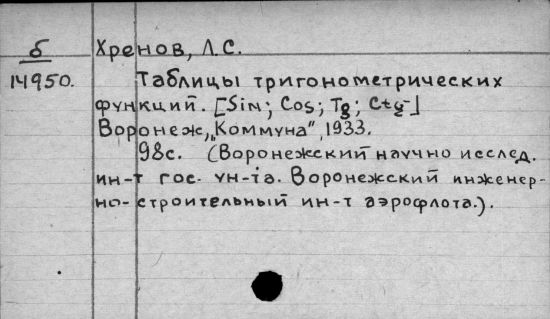 б Хренов, Л.С.
14950. Таблицы тригонометрических
функций. [Sin; Cos; Tg; Ctg]
Воронеж, „Коммуна", 1933.
98с. (Воронежский научно исслед.
ин-т гос. ун-та. Воронежский инженер-
но-строительный ин-т аэрофлота.).